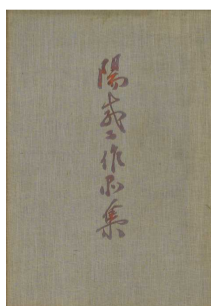 陽咸二作品集